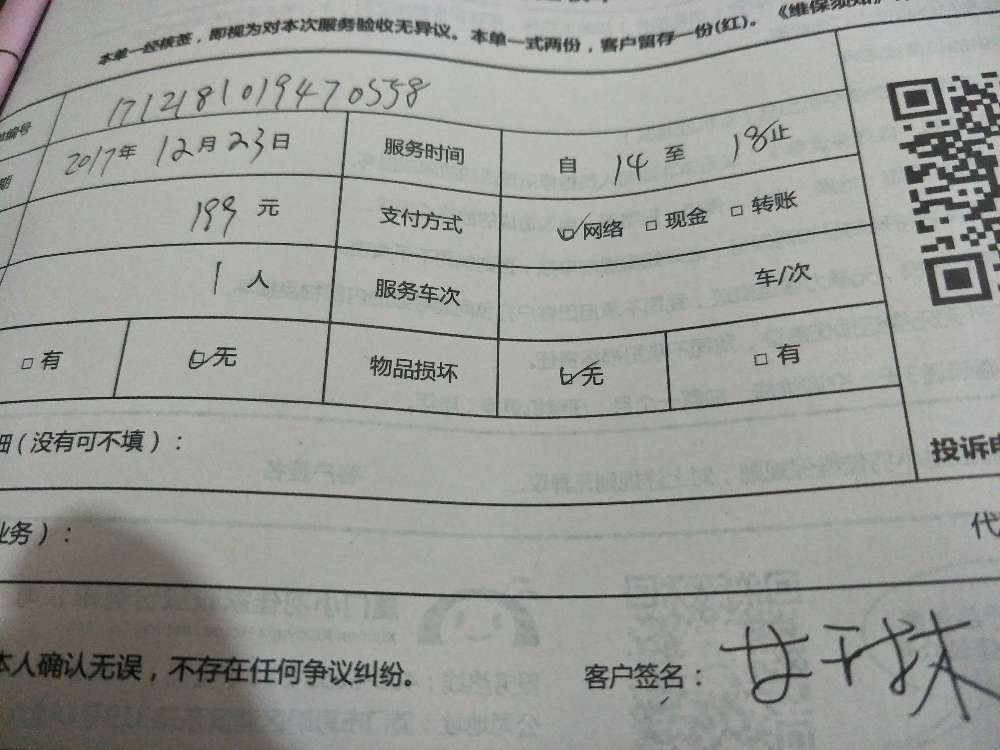 本单一经核签，即视为对本次服务验收无异议。本单一式两份，客户留存一份(红)。《维保须知》
编号 171218101947 0558
期 2017年 12月 23日 服务时间 自 14 至 18止
199 元 支付方式 ☑网络 □现金 □转账
1 人 服务车次 车/次
□有 ☑无 物品损坏 ☑无 □有
细(没有可不填)：
投诉电
业务)：
代
本人确认无误，不存在任何争议纠纷。 客户签名：